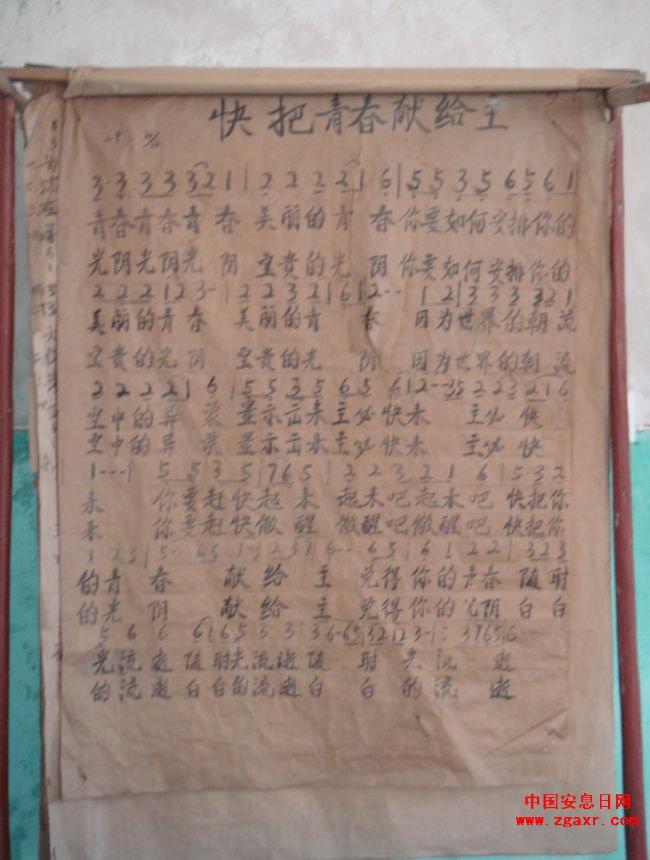 快把青春献给主
3·3 3 3 3 2 1 | 2 2 2 2 1 6 | 5 5 3 5 6 5 6 1
青春青春青春 美丽的青春你要如何安排你的
光阴光阴光阴 宝贵的光阴你要如何安排你的
2 2 2 1 2 3- | 2 2 3 2 1 6 | 2-- 1 2 | 3 3 3 3 2 1
美丽的青春 美丽的青春 因为世界的朝流
宝贵的光阴 宝贵的光阴 因为世界的朝流
2 2 2 2 1 6 | 5 5 3 5 6 5 6 | 2--35 2 2 3 2 1 6
空中的异象显示出来主必快来 主必快
空中的异象显示出来主必快来 主必快
1--- | 5 5 3 5 | 7 6 5 | 2 2 3 2 1 6 | 5 3 2
来 你要赶快起来 起来吧起来吧 快把你
来 你要赶快儆醒 儆醒吧儆醒吧 快把你
1 2 3 | 5-- 6 5 1 3 2 3 7 | 6-- 6 5 | 6 1 2 2 | 3 2 3
的青春 献给主 免得你的青春随时
的光阴 献给主 免得你的光阴白白
5 6 6 6 1 6 5 3 3 | 3 6-65 | 32 12 3-1: 3 7 6 5 6--
光流逝随时光流逝随时光流逝
的流逝白白的流逝白白的流逝
中国安息日网
www.zgaxr.com